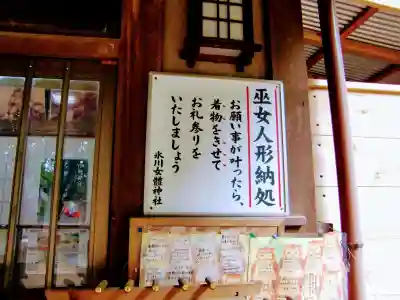 巫女人形納処
お願い事が叶ったら、
着物をきせて
お礼参りを
いたしましょう
氷川女體神社